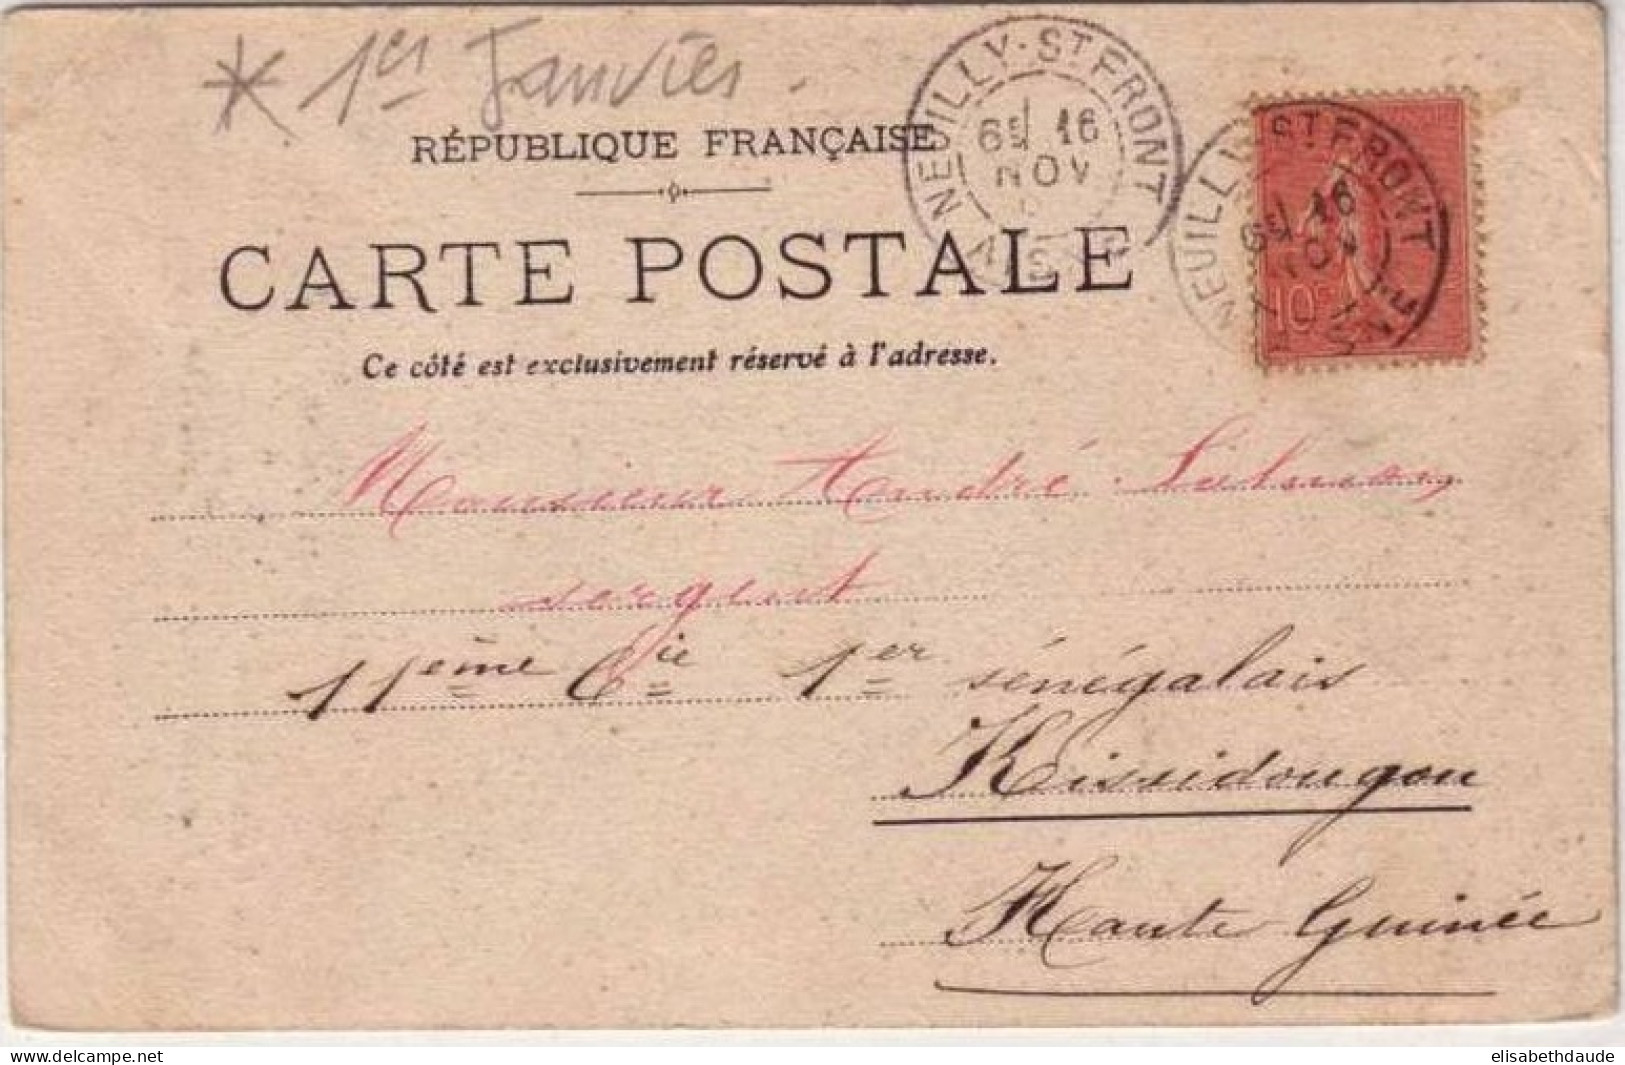 * 1er Janvier.
RÉPUBLIQUE FRANÇAISE
CARTE POSTALE
Ce côté est exclusivement réservé à l'adresse.
NEUILLY-ST FRONT
6E 16
NOV
AISNE
NEUILLY-ST FRONT
6E 16
NOV
AISNE
10c
Monsieur André
sergent
11ème Cie 1er sénégalais
Kissidougou
Haute Guinée
delcampe.net
elisabethdaude